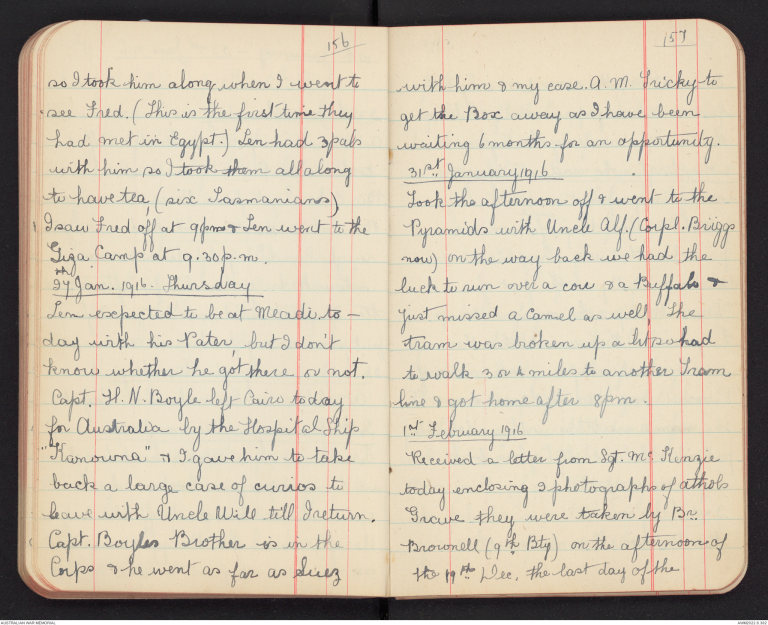 156
so I took him along when I went to
see Fred. (This is the first time they
had met in Egypt.) Len had 3 pals
with him so I took them all along
to have tea, (six Tasmanians)
I saw Fred off at 9pm & Len went to the
Giza Camp at 9.30p.m.
27th Jan. 1916. Thursday
Len expected to be at Meadi to-
day with his Pater, but I don't
know whether he got there or not.
Capt. H. N. Boyle left Cairo today
for Australia by the Hospital Ship
"Kanowna" & I gave him to take
back a large case of curios to
leave with Uncle Will till I return.
Capt. Boyles Brother is in the
Corps & he went as far as Suez
157
with him & my case. A. M. Tricky to
get the Box away as I have been
waiting 6 months for an opportunity.
31st January 1916
Took the afternoon off & went to the
Pyramids with Uncle Alf. (Corpl. Briggs
now) on the way back we had the
luck to run over a cow & a Buffalo &
just missed a Camel as well, The
tram was broken up a bit so had
to walk 3 or 4 miles to another Tram
line & got home after 8pm.
1st February 1916
Received a letter from Sgt. Mc Kenzie
today enclosing 2 photographs of Athols
Grave they were taken by Br.
Brownell (9th Bty) on the afternoon of
the 19th Dec. the last day of the
AUSTRALIAN WAR MEMORIAL